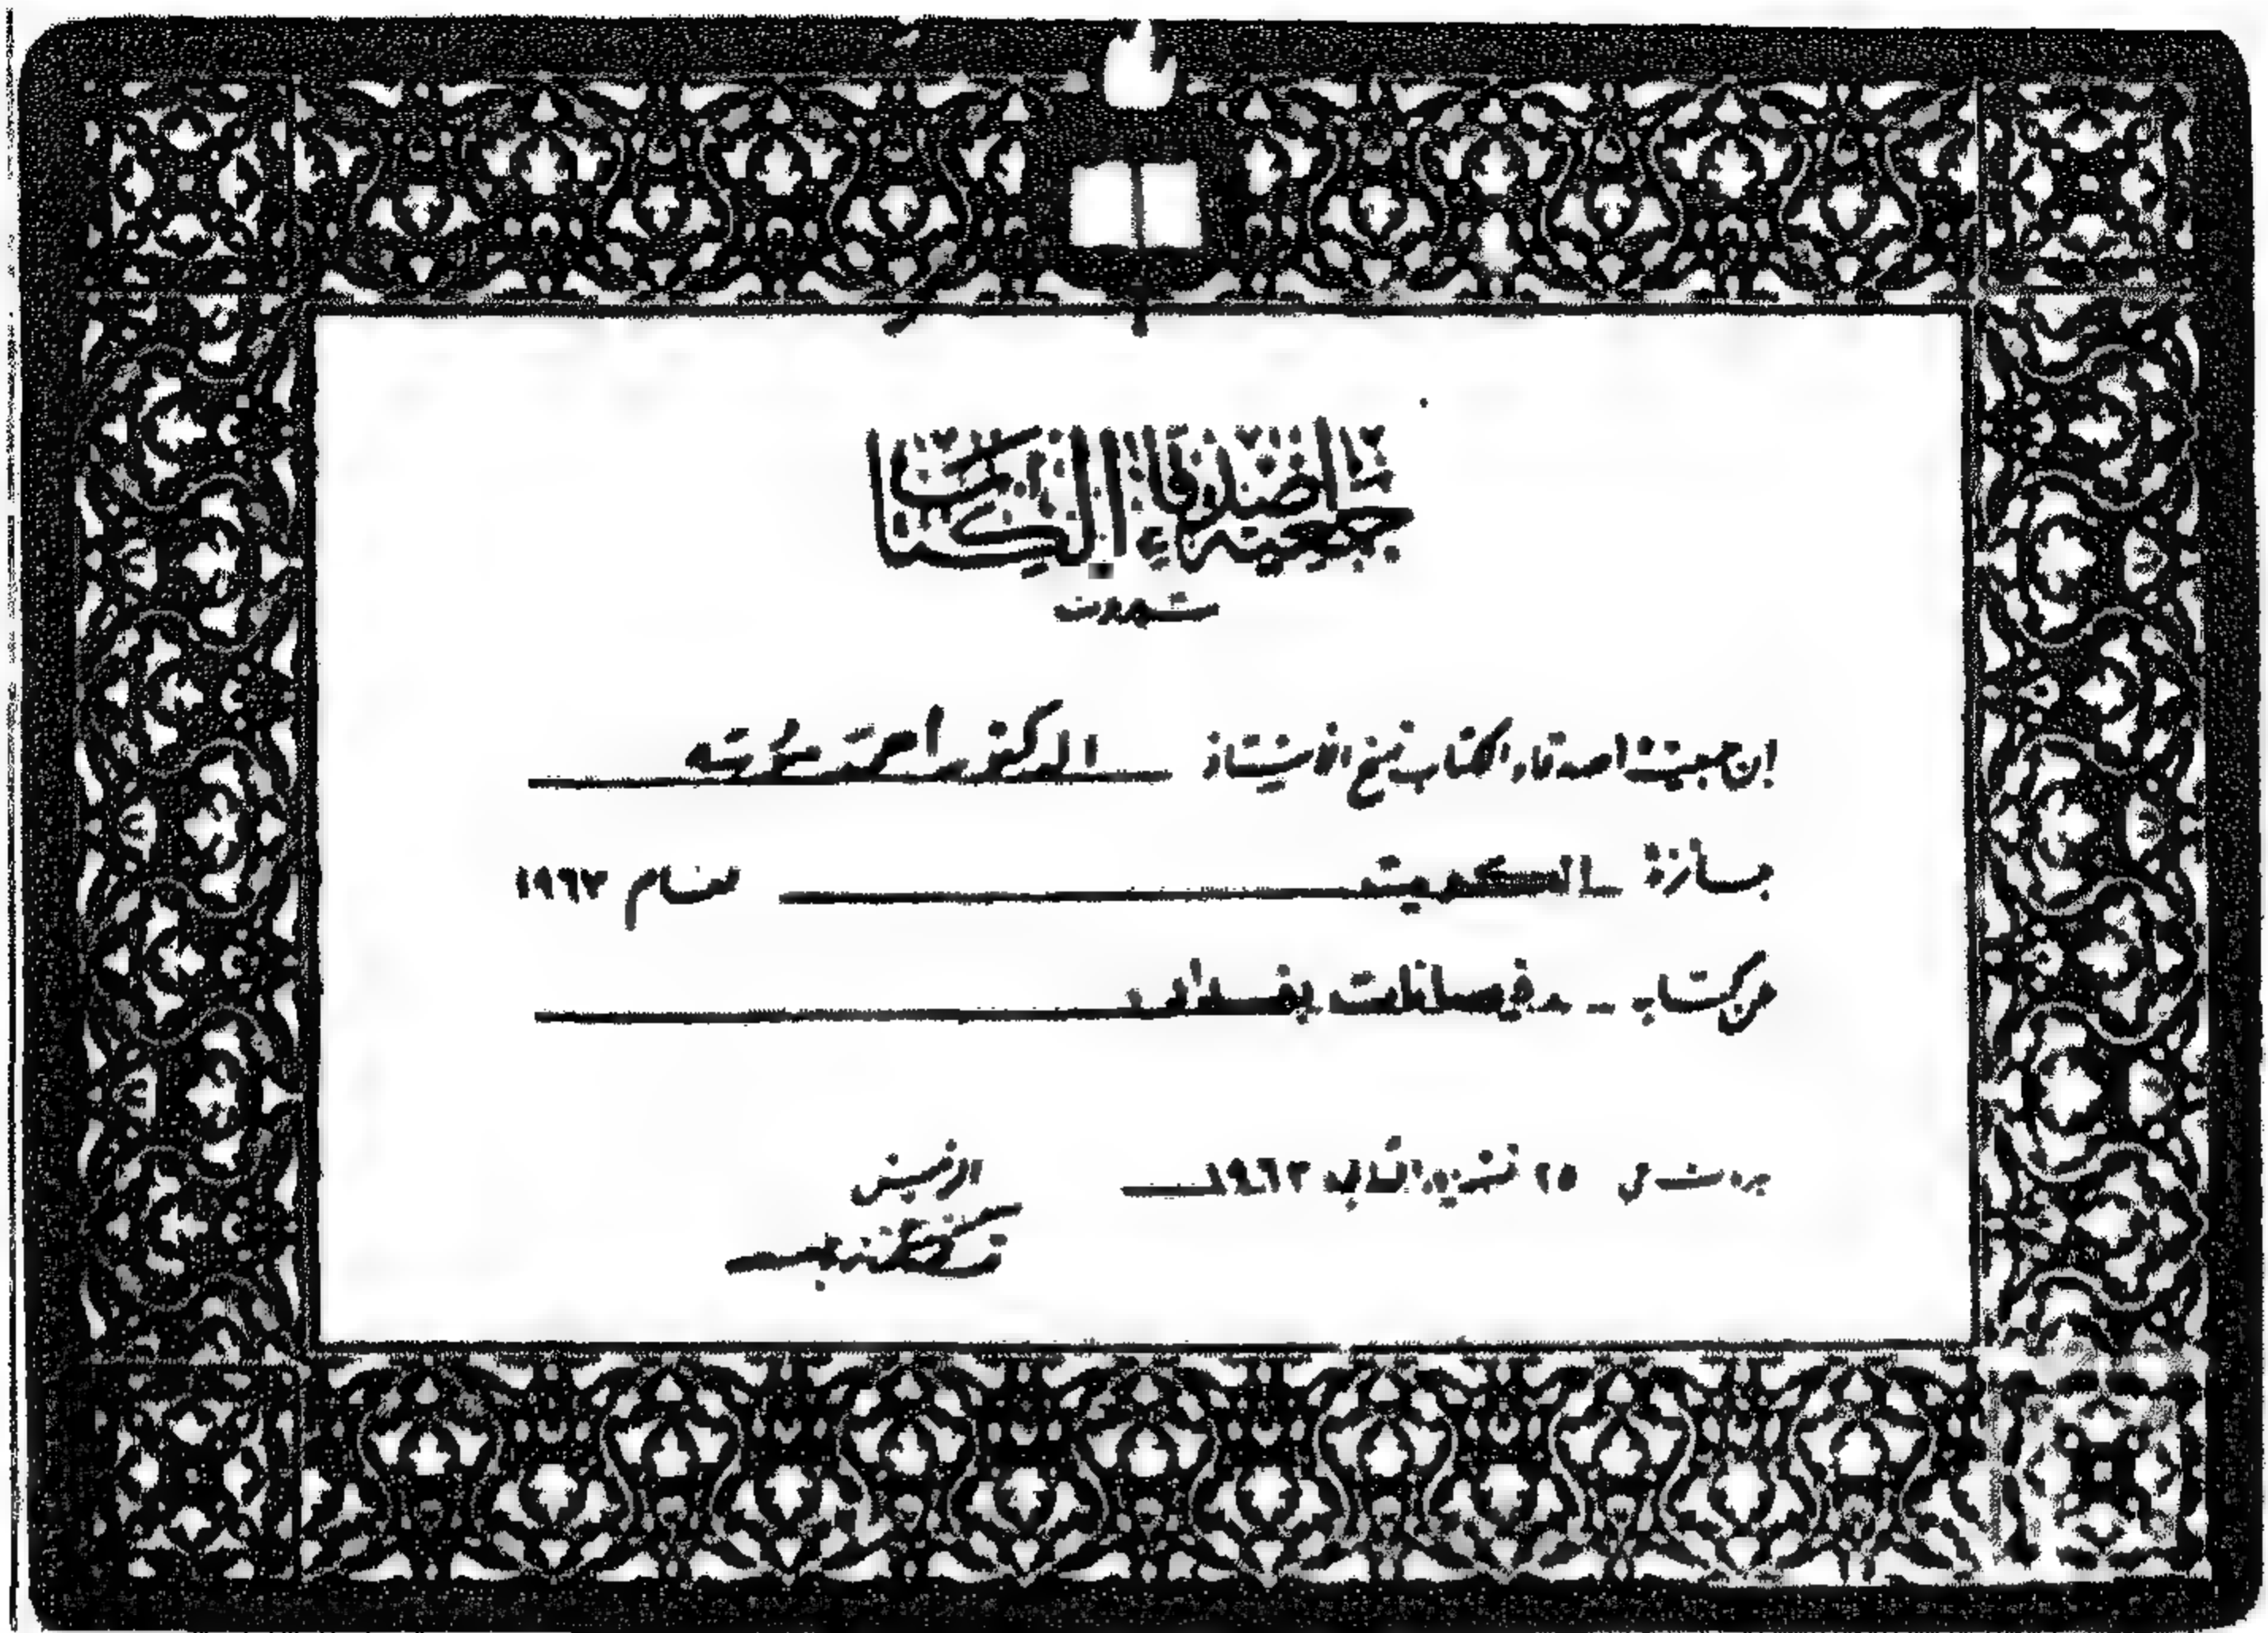 جمعية اصدقاء الكتاب
إن جمعية اصدقاء الكتاب تمنح الأستاذ الدكتور احمد سوسه
جائزة الكويت لعام ١٩٦٣
عن كتاب فيضانات بغداد
بيروت في ٢٥ تشرين الثاني ١٩٦٣
الرئيس